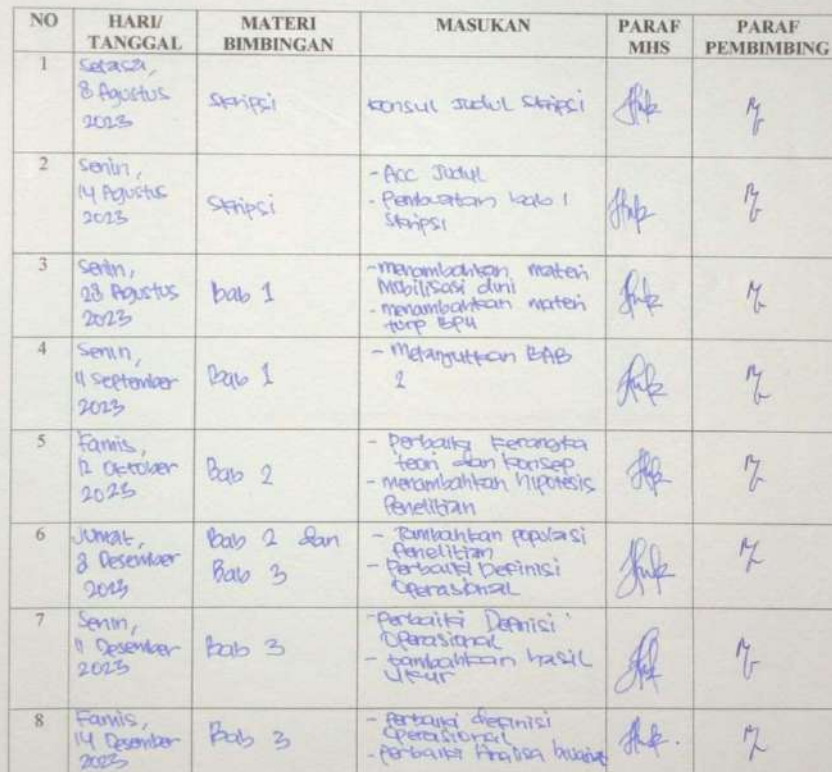 NO HARI/ TANGGAL MATERI BIMBINGAN MASUKAN PARAF MHS PARAF PEMBIMBING
1
Selasa,
8 Agustus
2023
Skripsi
Konsul Judul Skripsi
2
Senin,
14 Agustus
2023
Skripsi
- Acc Judul
- Pembuatan bab 1
Skripsi
3
Senin,
28 Agustus
2023
bab 1
- menambahkan materi
Mobilisasi dini
- menambahkan materi
4
Senin,
11 September
2023
Bab 1
- Melanjutkan BAB
2
5
Kamis,
12 Oktober
2023
Bab 2
- Perbaiki Kerangka
teori dan Konsep
- menambahkan hipotesis
Penelitian
6
Jumat,
Desember
2023
Bab 2 dan
Bab 3
- Tambahkan populasi
Penelitian
- Perbaiki Definisi
Operasional
7
Senin,
11 Desember
2023
Bab 3
- Perbaiki Definisi
Operasional
- tambahkan hasil
Ukur
8
Kamis,
14 Desember
2023
Bab 3
- Perbaiki definisi
Operasional
- perbaiki Analisa